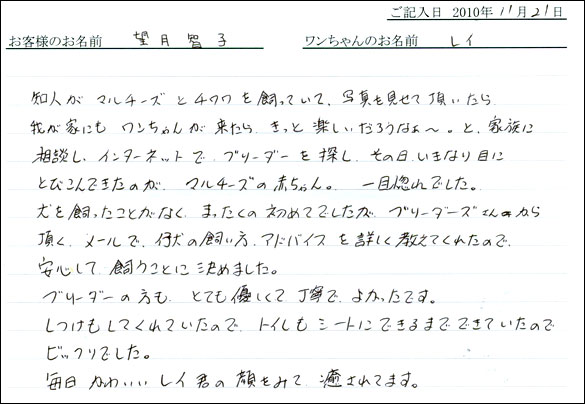 ご記入日 2010年 11月21日
お客様のお名前 望月智子 ワンちゃんのお名前 レイ
知人が マルチーズ と チワワ を 飼っていて、写真を見せて頂いたら
我が家にも ワンちゃんが 来たら、きっと 楽しいだろうなぁ〜。と、家族に
相談し、インターネットで、ブリーダーを探し、その日、いきなり目に
とびこんできたのが、マルチーズの赤ちゃん。 一目惚れでした。
犬を飼ったことがなく、まったくの初めてでしたが、ブリーダーズさんから
頂く、メールで、仔犬の飼い方、アドバイスを詳しく教えてくれたので、
安心して飼うことに決めました。
ブリーダーの方も、とても優しくて丁寧で、よかったです。
しつけもしてくれていたので、トイレもシートにできるまでできていたので
ビックリでした。
毎日、かわいい レイ君の顔をみて、癒されてます。